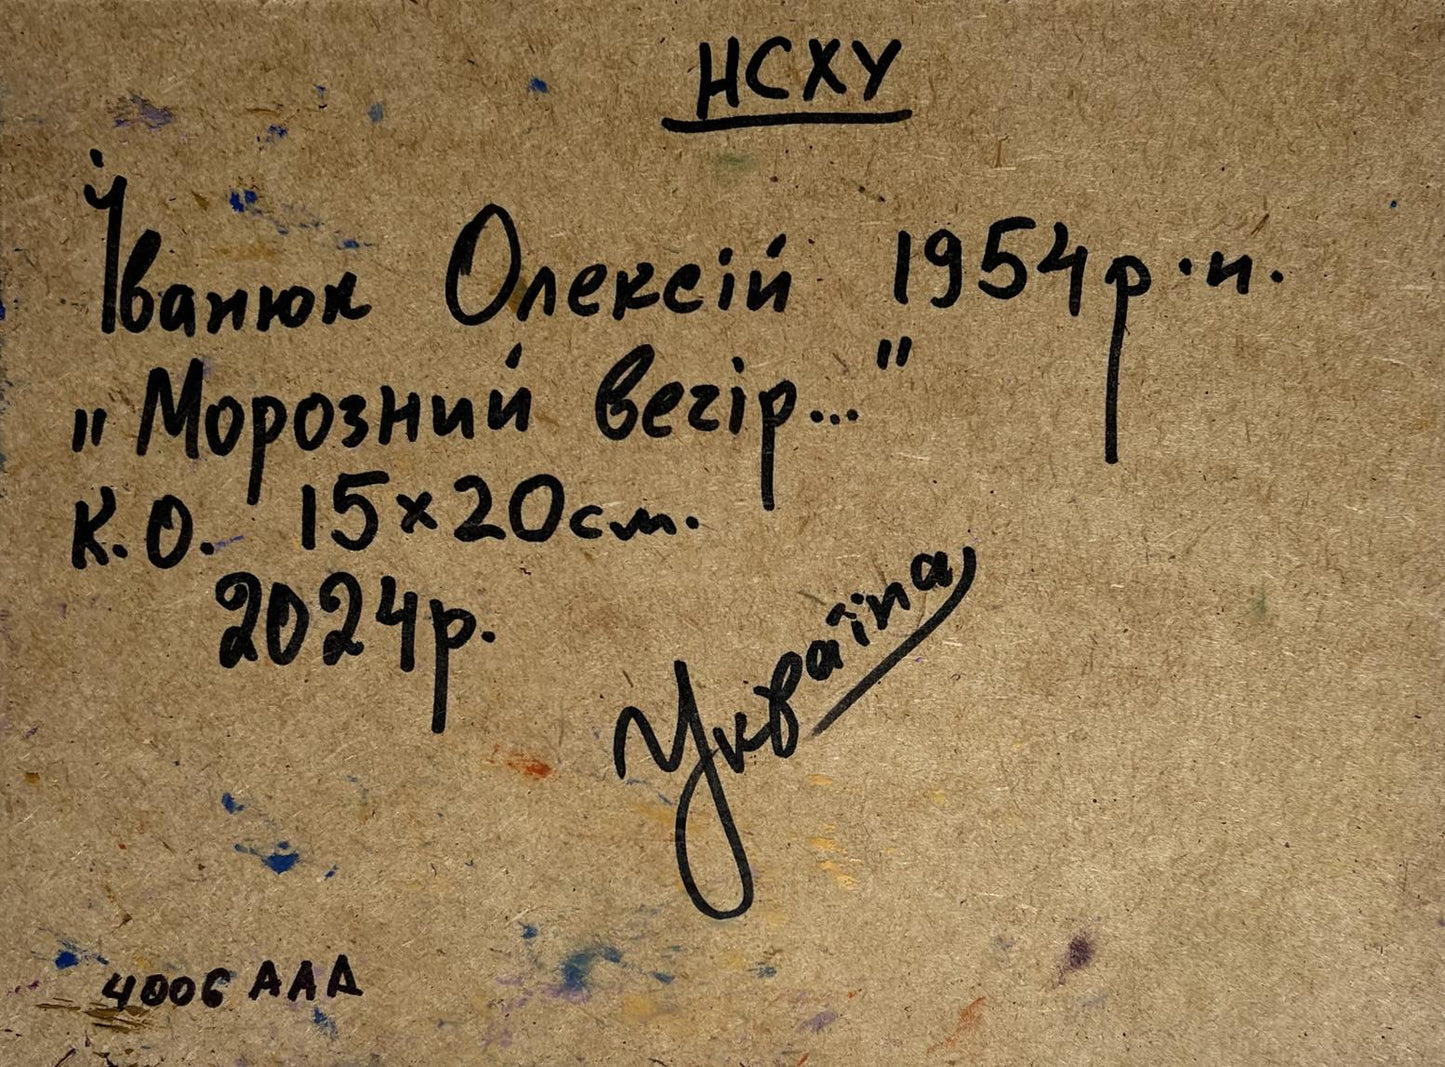 НСХУ
Іванюк Олексій 1954 р.н.
„Морозний вечір..."
к.о. 15×20см.
2024р.
Україна
4006 ААА